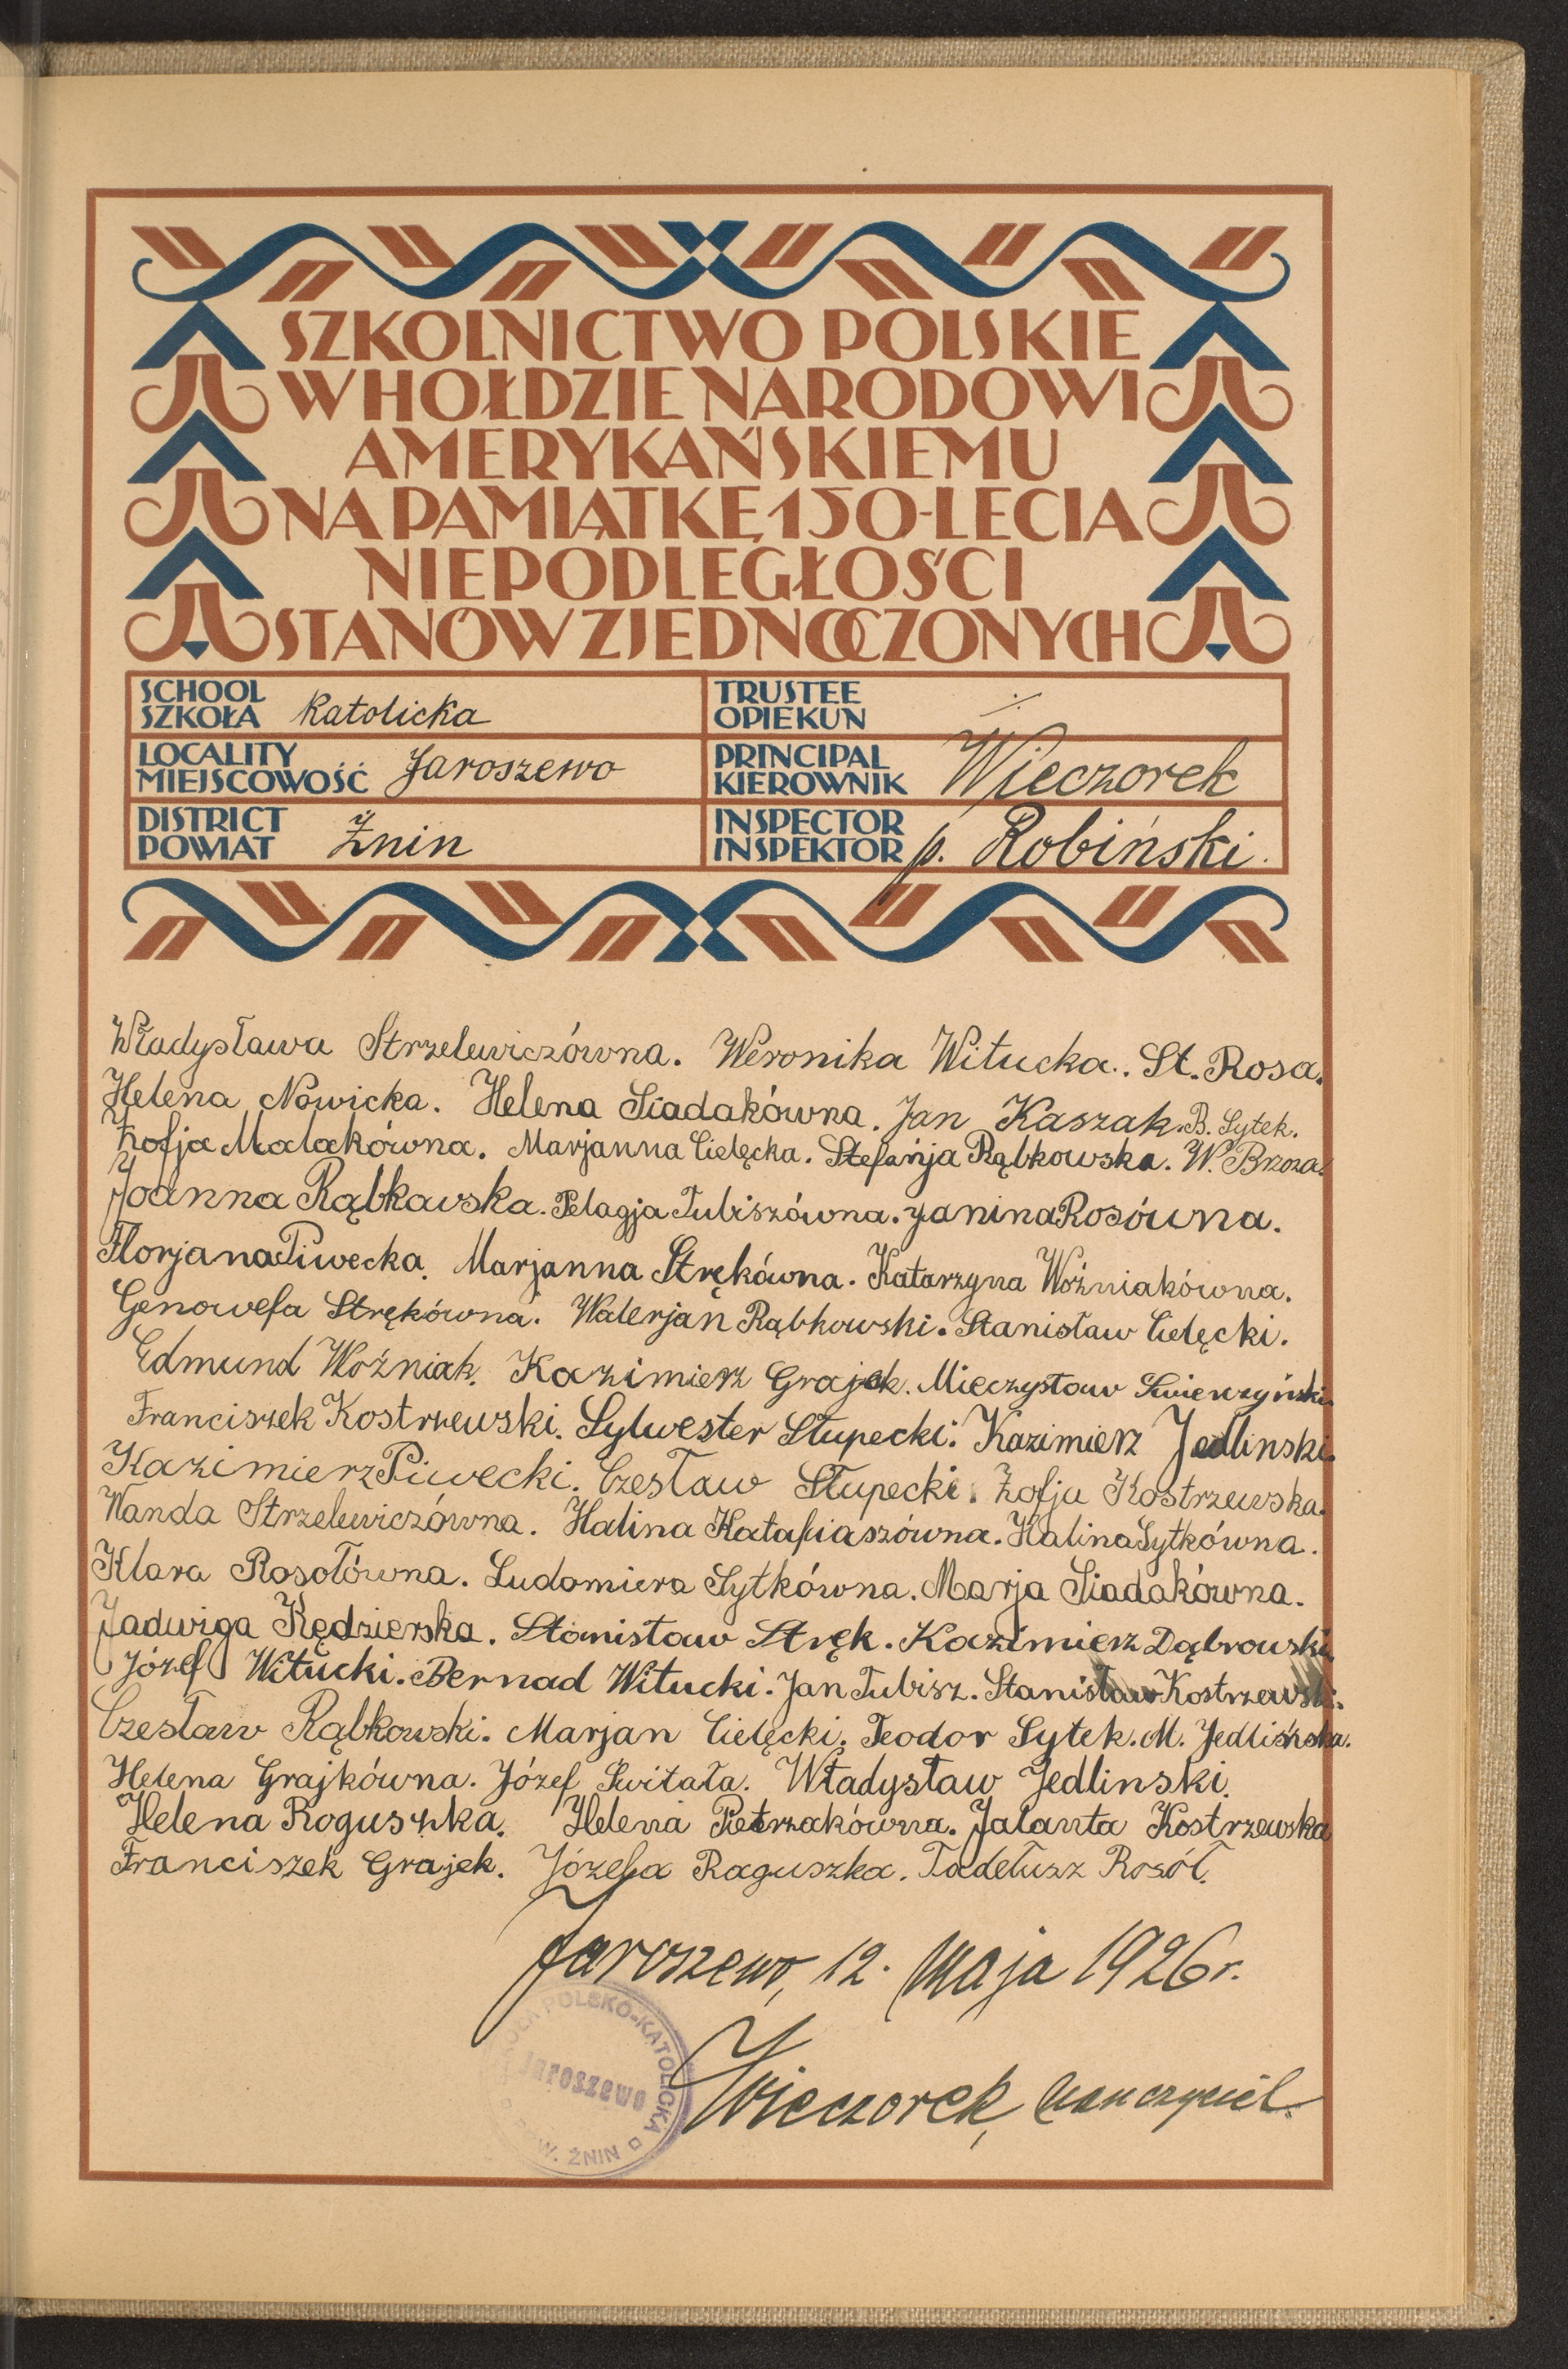 SZKOLNICTWO POLSKIE
W HOŁDZIE NARODOWI
AMERYKAŃSKIEMU
NA PAMIĄTKĘ 150-LECIA
NIEPODLEGŁOŚCI
STANÓW ZJEDNOCZONYCH
SCHOOL
SZKOŁA Katolicka
TRUSTEE
OPIEKUN
LOCALITY
MIEJSCOWOŚĆ Jaroszewo
PRINCIPAL
KIEROWNIK Wieczorek
DISTRICT
POWIAT Żnin
INSPECTOR
INSPEKTOR p. Robiński.
Władysława Strzelewiczówna. Weronika Witucka. St. Rosa.
Helena Nowicka. Helena Siadakówna. Jan Kaszak. B. Sytek.
Zofja Malakówna. Marjanna Cielęcka. Stefanja Rąbkowska. W. Brzoza.
Joanna Rąbkowska. Pelagja Tubiszówna. Janina Rosówna.
Florjana Piwecka. Marjanna Strękówna. Katarzyna Woźniakówna.
Genowefa Strękówna. Walerjan Rąbkowski. Stanisław Cielęcki.
Edmund Woźniak. Kazimierz Grajek. Mieczysław Swierczyński.
Franciszek Kostrzewski. Sylwester Słupecki. Kazimierz Jedlinski.
Kazimierz Piwecki. Czesław Słupecki. Zofja Kostrzewska.
Wanda Strzelewiczówna. Halina Katafiaszówna. Halina Sytkówna.
Klara Rosołówna. Ludomiera Sytkówna. Marja Siadakówna.
Jadwiga Kędzierska. Stanisław Stręk. Kazimierz Dąbrowski.
Józef Witucki. Bernad Witucki. Jan Tubisz. Stanisław Kostrzewski.
Czesław Rąbkowski. Marjan Cielęcki. Teodor Sytek. M. Jedlińska.
Helena Grajkówna. Józef Switała. Władysław Jedlinski.
Helena Roguszka. Helena Pietrzakówna. Jalanta Kostrzewska
Franciszek Grajek. Józefa Raguszka. Tadeusz Rosół.
Jaroszewo, 12. maja 1926 r.
SZKOŁA POLSKO-KATOLICKA
Jaroszewo
POW. ŻNIN
Wieczorek, nauczyciel.